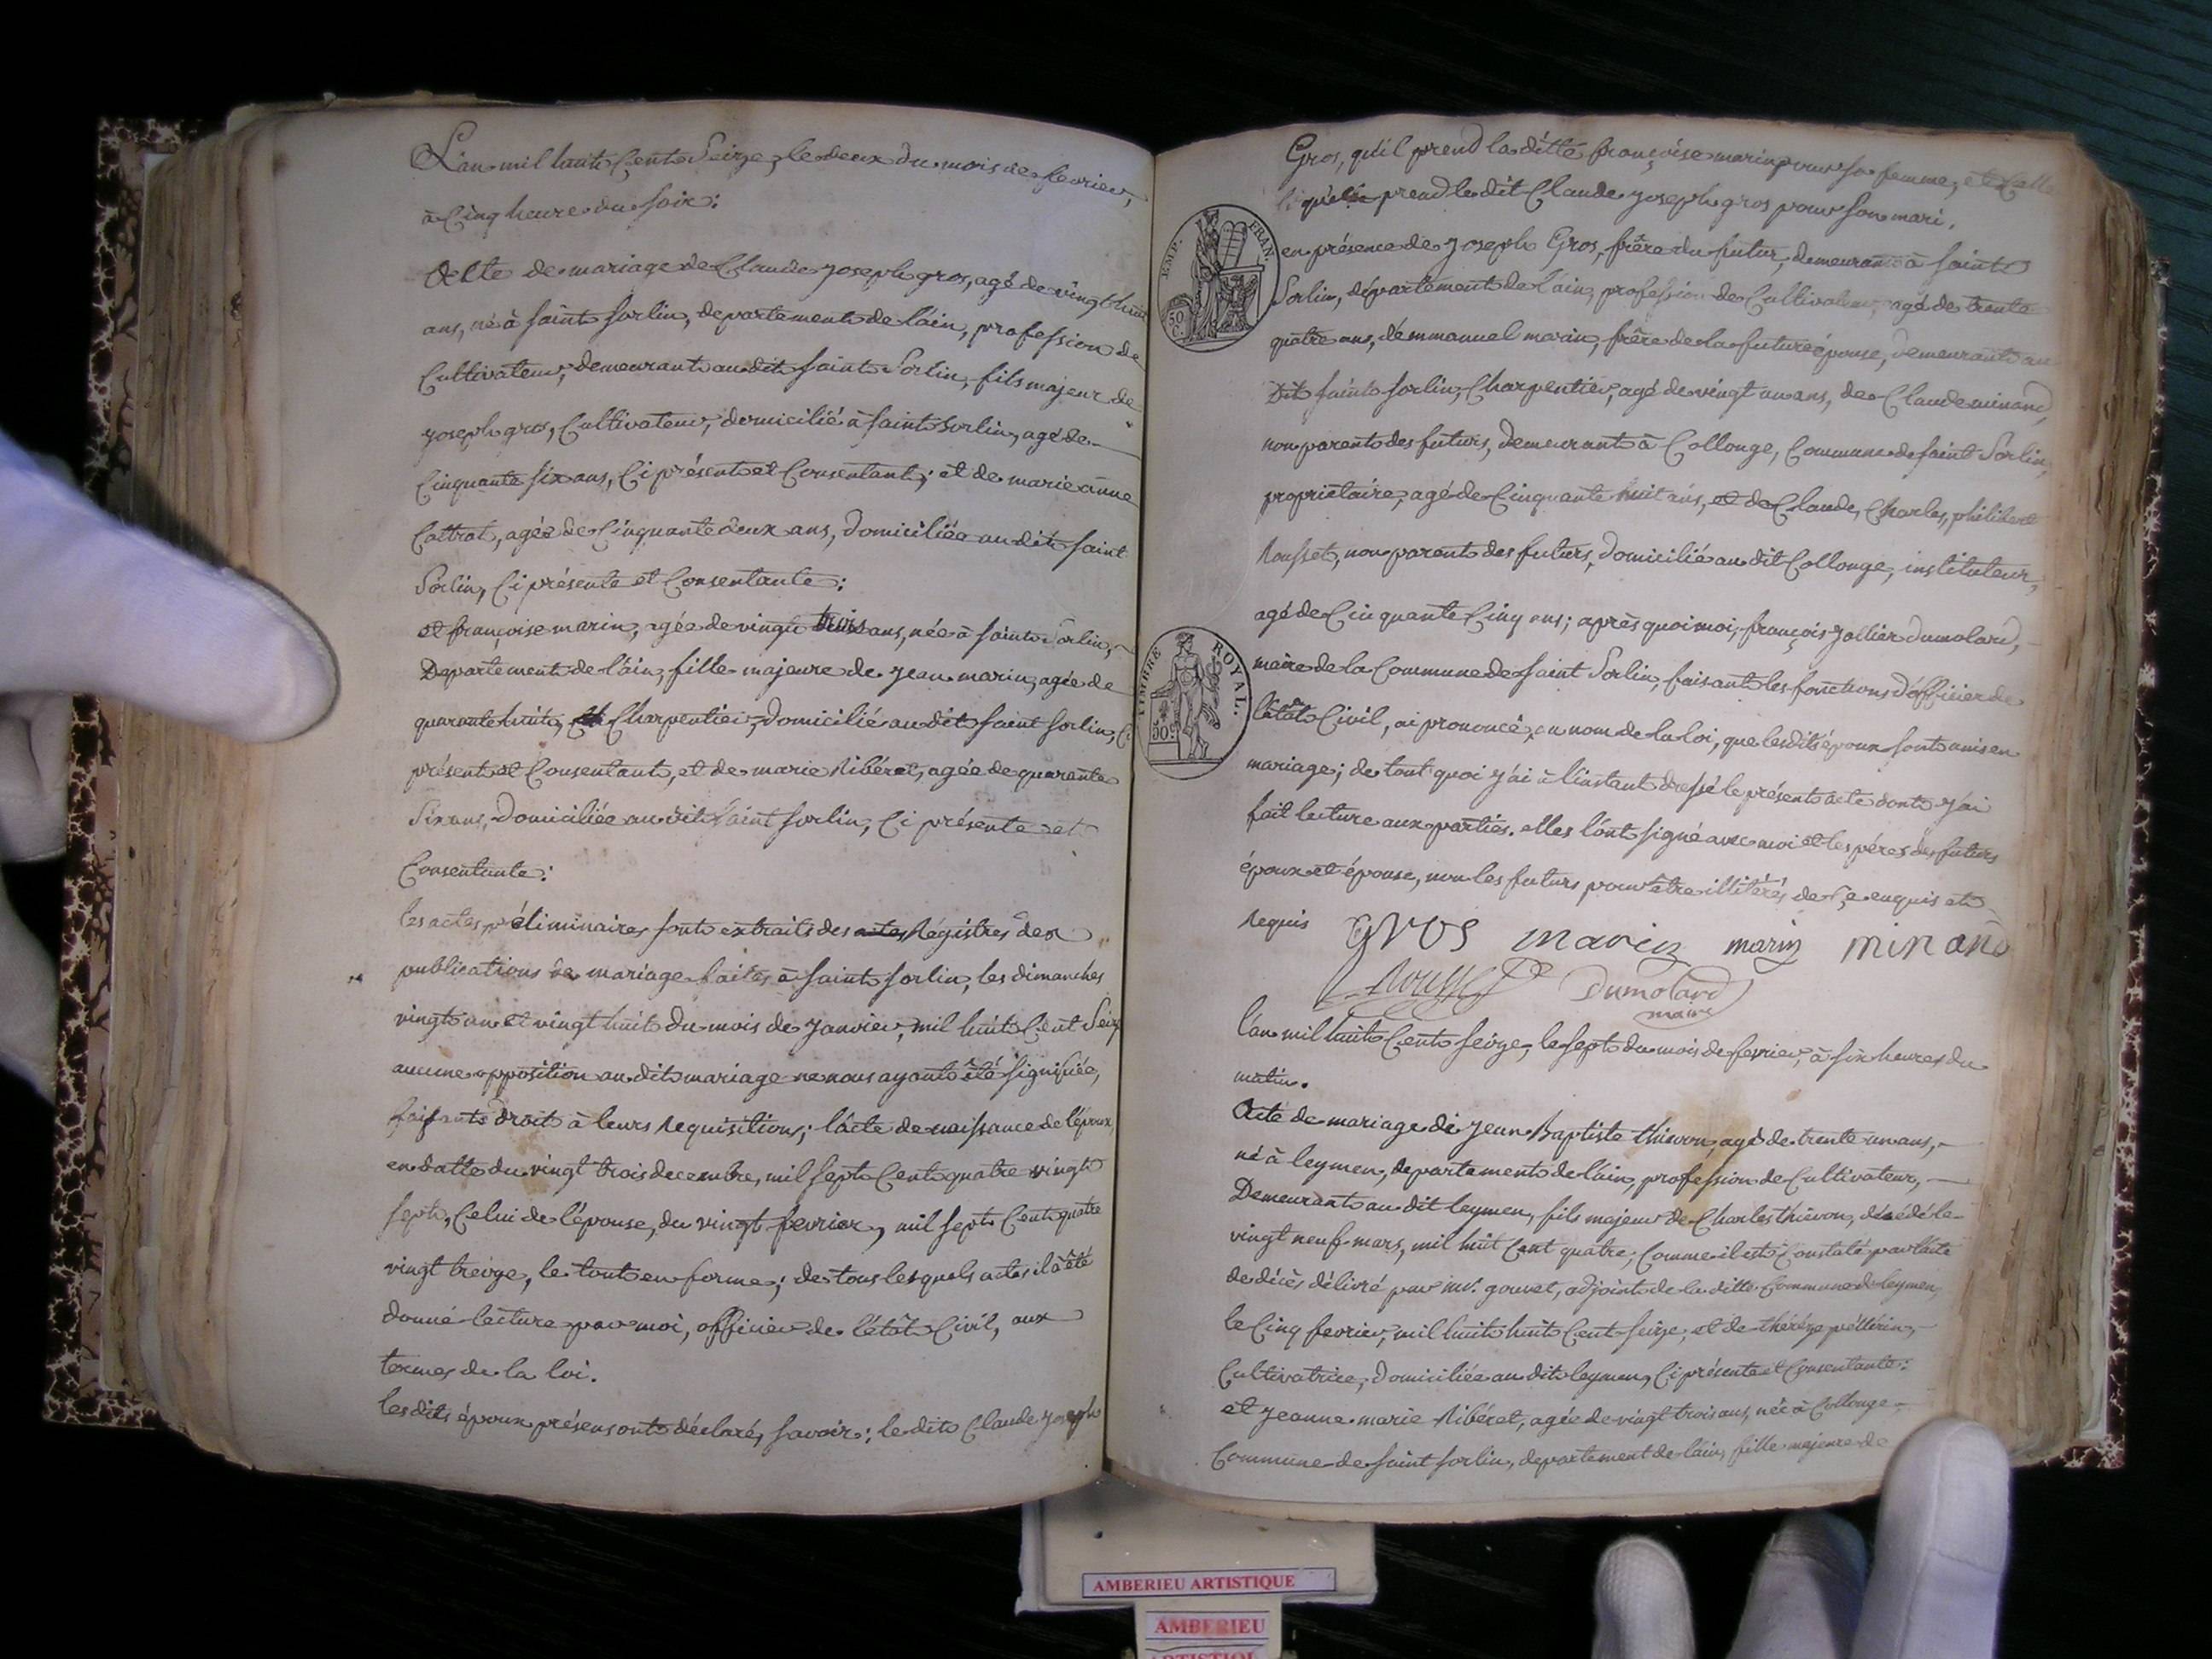 L'an mil huit Cent Seize, le deux du mois de fevrier,
à Cinq heure du soir:
Acte de mariage de Claude joseph gros, agé de vingt huit
ans, né à saint sorlin, departement de l'ain, profession de
Cultivateur, demeurant au dit saint Sorlin, fils majeur de
joseph gros, Cultivateur, domicilié à saint Sorlin, agé de
Cinquante six ans, Ci présent et Consentant; et de marie anne
Cattrat, agée de Cinquante deux ans, domiciliée au dit saint
Sorlin, Ci présente et Consentante:
et françoise marin, agée de vingt trois ans, née à saint Sorlin,
Departement de l'ain, fille majeure de jean marin, agée de
quarante huit, Charpentier, domicilié au dit saint sorlin, Ci
présent et Consentant, et de marie Ribéret, agée de quarante
Six ans, Domiciliée au dit saint sorlin, Ci présente et
Consentante:
les actes préliminaires sont extraits des actes Régistres des
publications de mariage faites à saint sorlin, les dimanches
vingt un et vingt huit du mois de janvier, mil huit Cent Seize
aucune opposition au dit mariage ne nous ayant été signifiée,
faisants droit à leurs Requisitions; l'acte de naissance de l'époux,
en datte du vingt trois decembre, mil sept Cent quatre vingt
sept, Celui de l'épouse, du vingt fevrier, mil sept Cent quatre
vingt treize, le tout en forme; de tous lesquels actes il à été
donné lecture par moi, officier de l'état Civil, aux
termes de la loi.
les dits époux présens ont déclaré, savoir: le dit Claude joseph
Gros, qu'il prend la ditte françoise marin pour sa femme, et Celle
qu'elle prend le dit Claude joseph gros pour son mari.
EMP. FRAN.
50 C.
en présence de joseph Gros, frère du futur, demeurant à saint
Sorlin, département de l'ain, profession de Cultivateur, agé de trente
quatre ans, d'emmanuel marin, frère de la future épouse, demeurant au
Dit saint sorlin, Charpentier, agé de vingt un ans, de Claude minand,
non parent des futurs, demeurant à Collonge, Commune de saint Sorlin,
propriètaire, agé de Cinquante huit ans, et de Claude, Charles, philibert
Rousset, non parent des futurs, domicilié au dit Collonge, instituteur,
agé de Cinquante Cinq ans; après quoi moi, françois jollier Dumolard,
TIMBRE ROYAL.
50 C.
maire de la Commune de saint Sorlin, faisant les fonctions d'officier de
l'état Civil, ai prononcé, au nom de la loi, que les dits époux sont unis en
mariage; de tout quoi j'ai à l'instant dressé le présent acte dont j'ai
fait lecture aux parties. elles l'ont signé avec moi et les pères des futurs
époux et épouse, non les futurs pour être illitérés de Ce enquis et
Requis
Gros marin marin minand
Rousset Dumolard
maire
l'an mil huit Cent seize, le sept du mois de fevrier, à six heures du
matin.
Acte de mariage de jean Baptiste thievon, agé de trente un ans,
né à leymen, departement de l'ain, profession de Cultivateur,
Demeurant au dit leymen, fils majeur de Charles thievon, décédé le
vingt neuf mars, mil huit Cent quatre, Comme il est Constaté par l'acte
de décès délivré par mr. gouvet, adjoint de la ditte Commune de leymen,
le Cinq fevrier, mil huit huit Cent seize, et de thérèze pellerin,
Cultivatrice, domiciliée au dit leymen, Ci présente et Consentante:
et jeanne marie Ribéret, agée de vingt trois ans, née à Collonge
Commune de saint sorlin, departement de l'ain, fille majeure de
AMBERIEU ARTISTIQUE
AMBERIEU
ARTISTIQUE